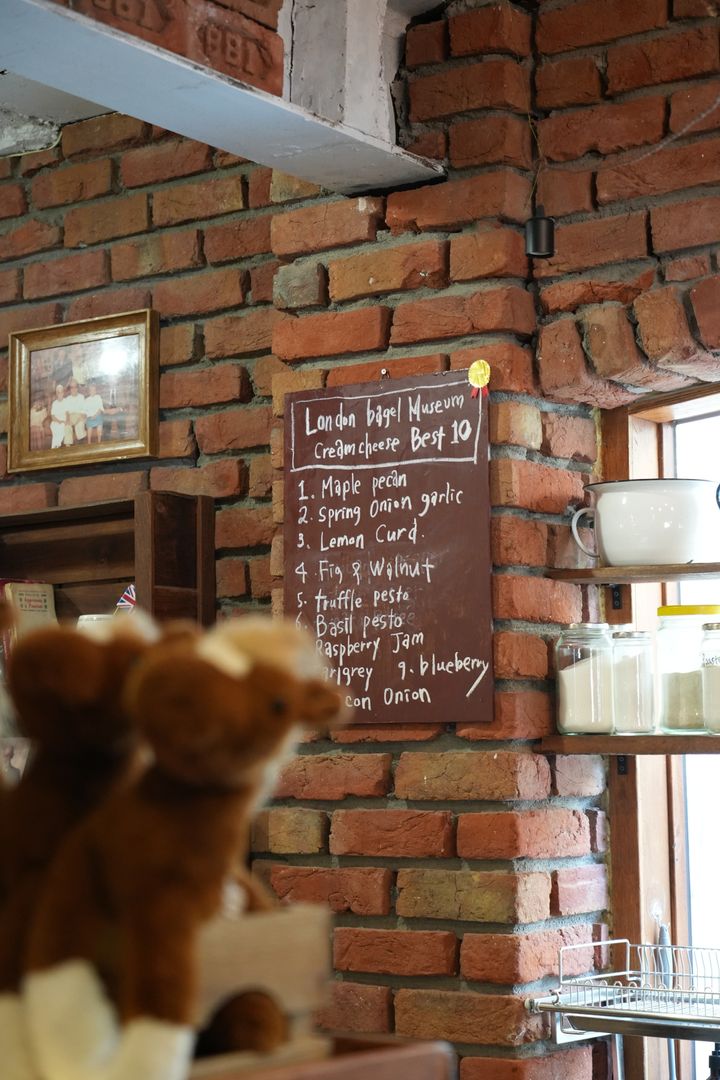 BB1
BB1
London bagel Museum
Creamcheese Best 10
1. Maple pecan
2. Spring Onion garlic
3. Lemon Curd.
4. Fig & Walnut
5. truffle pesto
6. Basil pesto
Raspberry Jam
9. blueberry
Onion